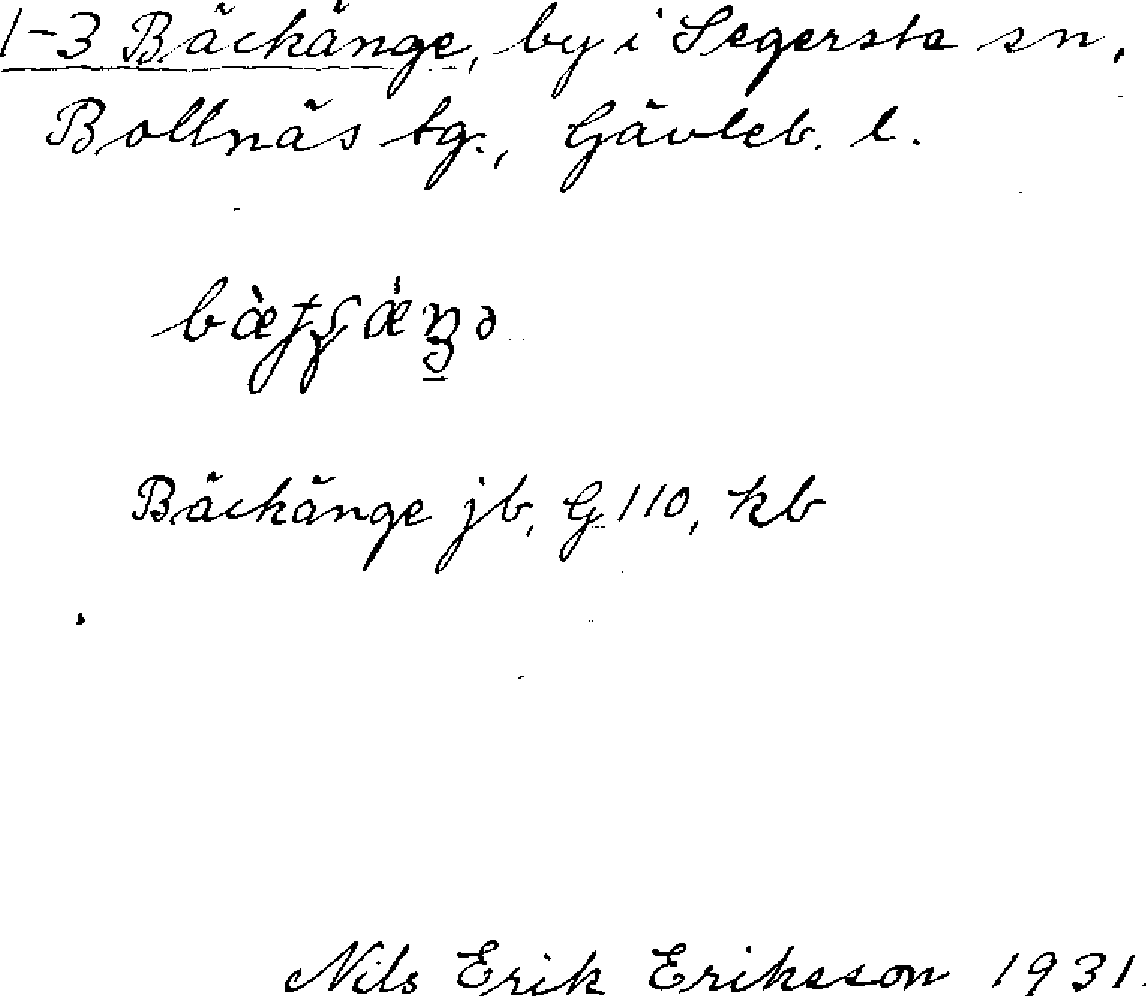 1-3 Bäckänge, by i Segersta sn,
Bollnäs tg., Gävleb. l.
Bäckänge jb, G 110, kb
Nils Erik Eriksson 1931